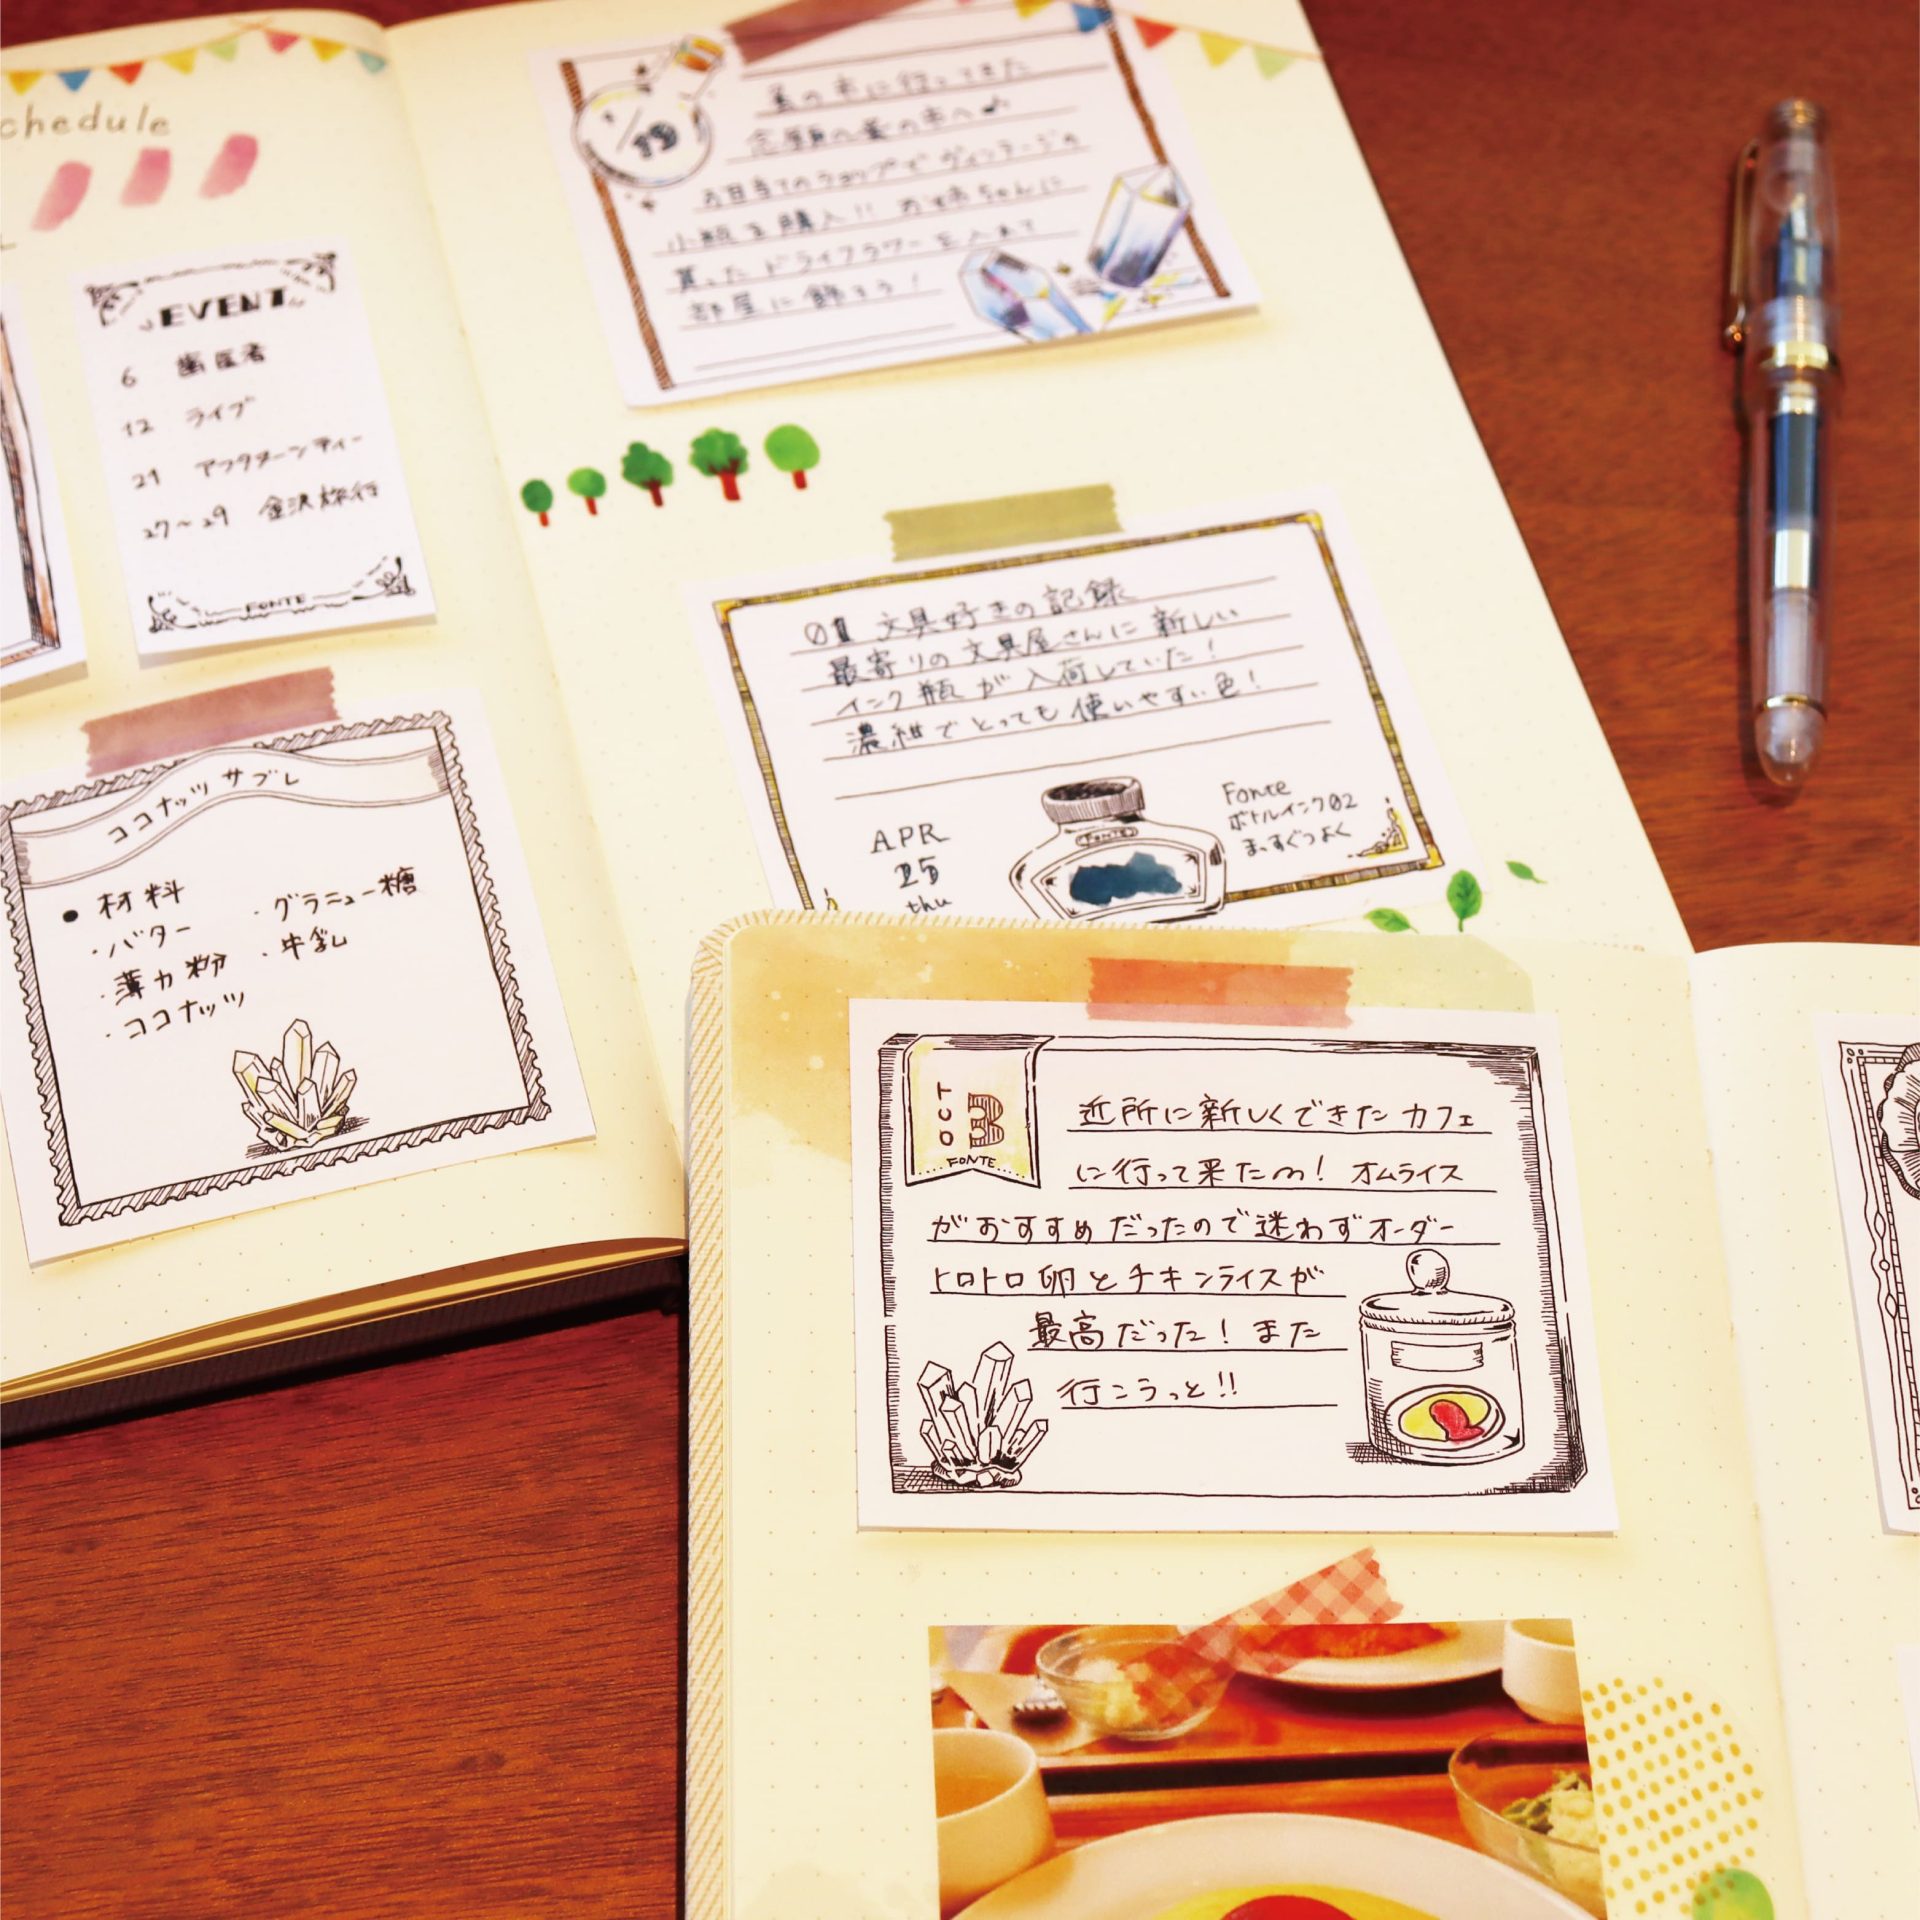 chedule
EVENT
6 歯医者
12 ライブ
21 アフタヌーンティー
27~29 金沢旅行
FONTE
ココナッツサブレ
● 材料
・バター
・薄力粉
・ココナッツ
・グラニュー糖
・牛乳
1/19
星の市に行ってきた
念願の星の市へ♪
お目当てのショップでヴィンテージの
小瓶を購入!! お姉ちゃんに
貰ったドライフラワーを入れて
部屋に飾ろう!
01 文具好きの記録
最寄りの文具屋さんに新しい
インク瓶が入荷していた!
濃紺でとっても使いやすい色!
APR
25
thu
FONTE
Fonte
ボトルインク02
まっすぐつよく
OCT
3
FONTE
近所に新しくできたカフェ
に行って来たm! オムライス
がおすすめだったので迷わずオーダー
トロトロ卵とチキンライスが
最高だった! また
行こうっと!!